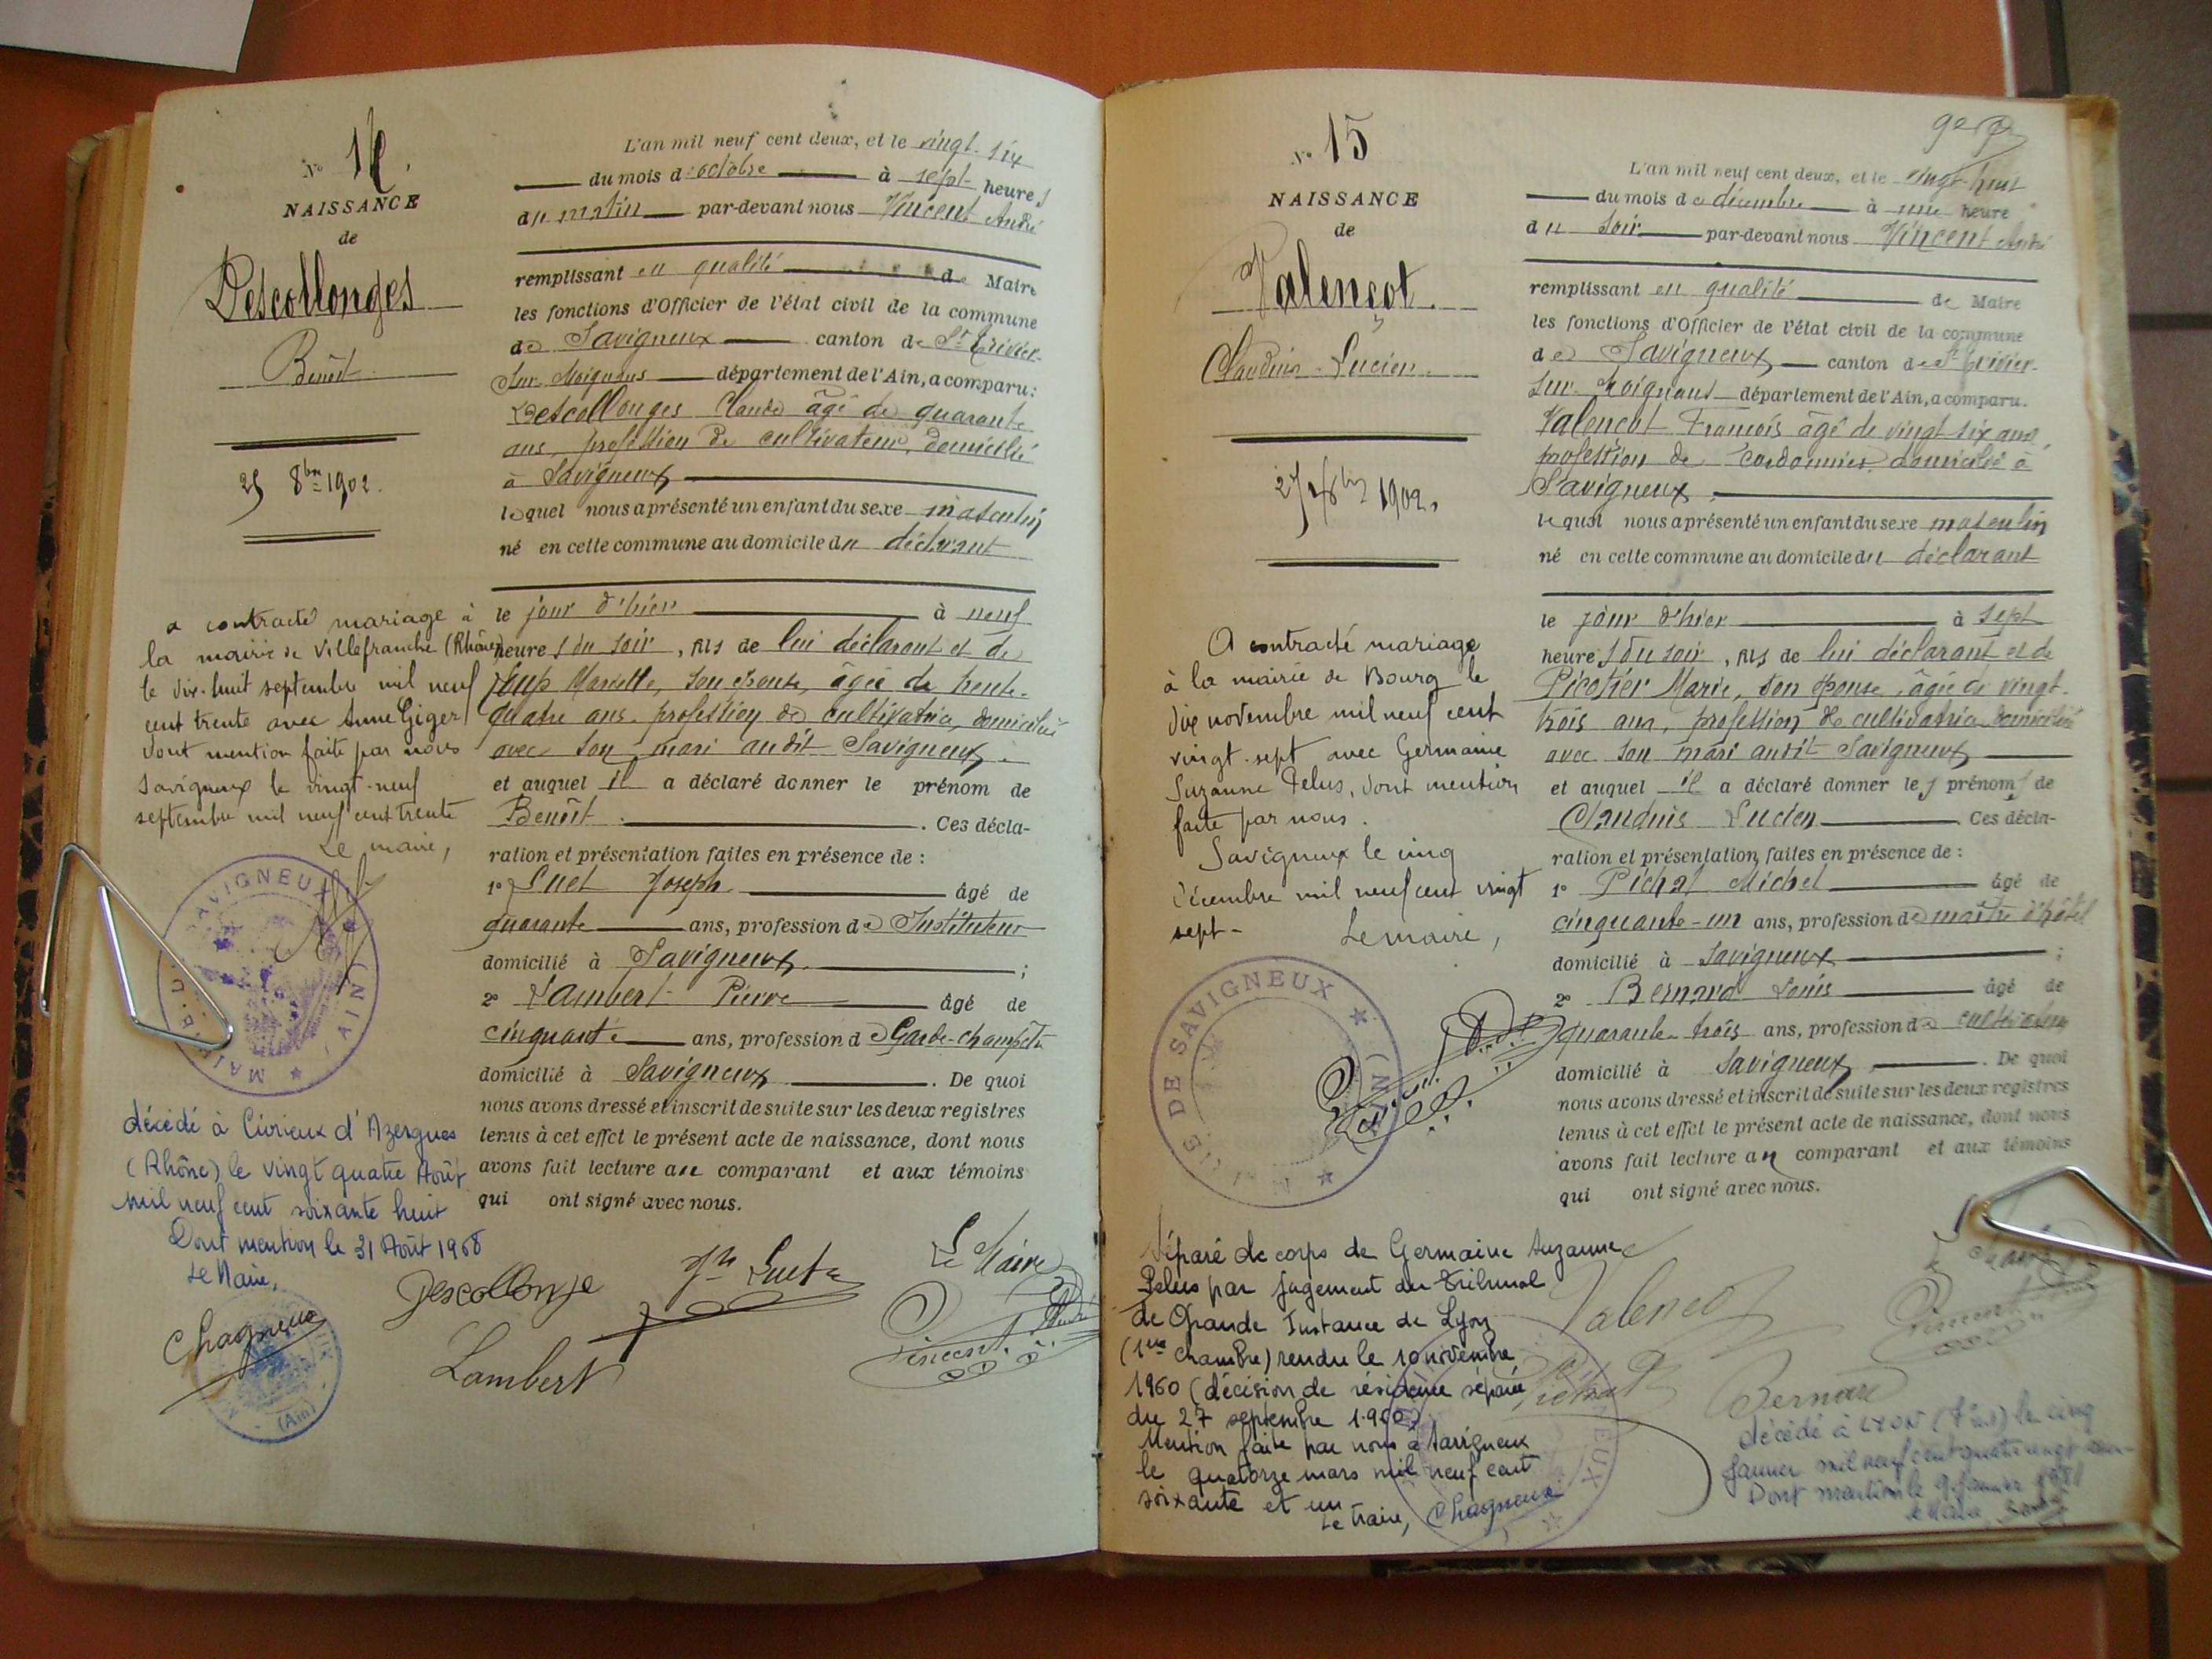 N° 14.
NAISSANCE
de
Descollonges
Benoît
25 8bre 1902.
a contracté mariage à
la mairie de Villefranche (Rhône)
le dix-huit septembre mil neuf
cent trente avec Anne Giger
dont mention faite par nous
Savigneux le vingt-neuf
septembre mil neuf cent trente
Le maire,
SAVIGNEUX
MAIRIE
(AIN)
décédé à Civrieux d'Azergues
(Rhône) le vingt quatre Août
mil neuf cent soixante huit
Dont mention le 31 Août 1968
Le Maire,
Chagneux
(Ain)
L'an mil neuf cent deux, et le vingt-six
du mois d'octobre à sept heures
du matin par-devant nous Vincent André
remplissant en qualité de Maire
les fonctions d'Officier de l'état civil de la commune
de Savigneux canton de St Trivier-
sur-Moignans département de l'Ain, a comparu:
Descollonges Claude âgé de quarante
ans, profession de cultivateur, domicilié
à Savigneux
lequel nous a présenté un enfant du sexe masculin
né en cette commune au domicile du déclarant
le jour d'hier à neuf
heures du soir, fils de lui déclarant et de
son épouse, âgée de trente-
quatre ans, profession de cultivatrice, domiciliée
avec son mari audit Savigneux.
et auquel il a déclaré donner le prénom de
Benoît. Ces décla-
ration et présentation faites en présence de :
1° Suet Joseph âgé de
quarante ans, profession de Instituteur
domicilié à Savigneux ;
2° Lambert Pierre âgé de
cinquante ans, profession de Garde-champêtre
domicilié à Savigneux. De quoi
nous avons dressé et inscrit de suite sur les deux registres
tenus à cet effet le présent acte de naissance, dont nous
avons fait lecture au comparant et aux témoins
qui ont signé avec nous.
Descollonge
Jh Suet
Le Maire
Lambert
Vincent
N° 15
NAISSANCE
de
Valençot.
Claudius-Lucien.
27 1902.
A contracté mariage
à la mairie de Bourg le
dix novembre mil neuf cent
vingt-sept avec Germaine
Suzanne Pelus, dont mention
faite par nous.
Savigneux le cinq
décembre mil neuf cent vingt
sept-
Le maire,
DE SAVIGNEUX
Séparé de corps de Germaine Suzanne
Pelus par jugement du Tribunal
de Grande Instance de Lyon
(1ère chambre) rendu le 10 novembre
1960 (décision de résidence séparée
du 27 septembre 1960)
Mention faite par nous à Savigneux
le quatorze mars mil neuf cent
soixante et un
Le Maire, Chagneux
L'an mil neuf cent deux, et le vingt-huit
du mois de décembre à une heure
du soir par-devant nous Vincent André
remplissant en qualité de Maire
les fonctions d'Officier de l'état civil de la commune
de Savigneux canton de St Trivier-
sur-Moignans département de l'Ain, a comparu.
Valençot François âgé de vingt six ans,
profession de cordonnier domicilié à
Savigneux.
lequel nous a présenté un enfant du sexe masculin
né en cette commune au domicile du déclarant
le jour d'hier à sept
heures du soir, fils de lui déclarant et de
Marie, son épouse, âgée de vingt-
trois ans, profession de cultivatrice domiciliée
avec son mari audit Savigneux
et auquel il a déclaré donner les prénoms de
Claudius Lucien. Ces décla-
ration et présentation faites en présence de :
1° Pichat Michel âgé de
cinquante-un ans, profession de maître d'hôtel
domicilié à Savigneux ;
2° Bernard Louis âgé de
quarante-trois ans, profession de cultivateur
domicilié à Savigneux. De quoi
nous avons dressé et inscrit de suite sur les deux registres
tenus à cet effet le présent acte de naissance, dont nous
avons fait lecture au comparant et aux témoins
qui ont signé avec nous.
Valençot
Le Maire
Vincent
Pichat
Bernard
décédé à LYON le cinq
janvier mil neuf cent quatre vingt un
Dont mention le 9 janvier 1981
Le Maire,